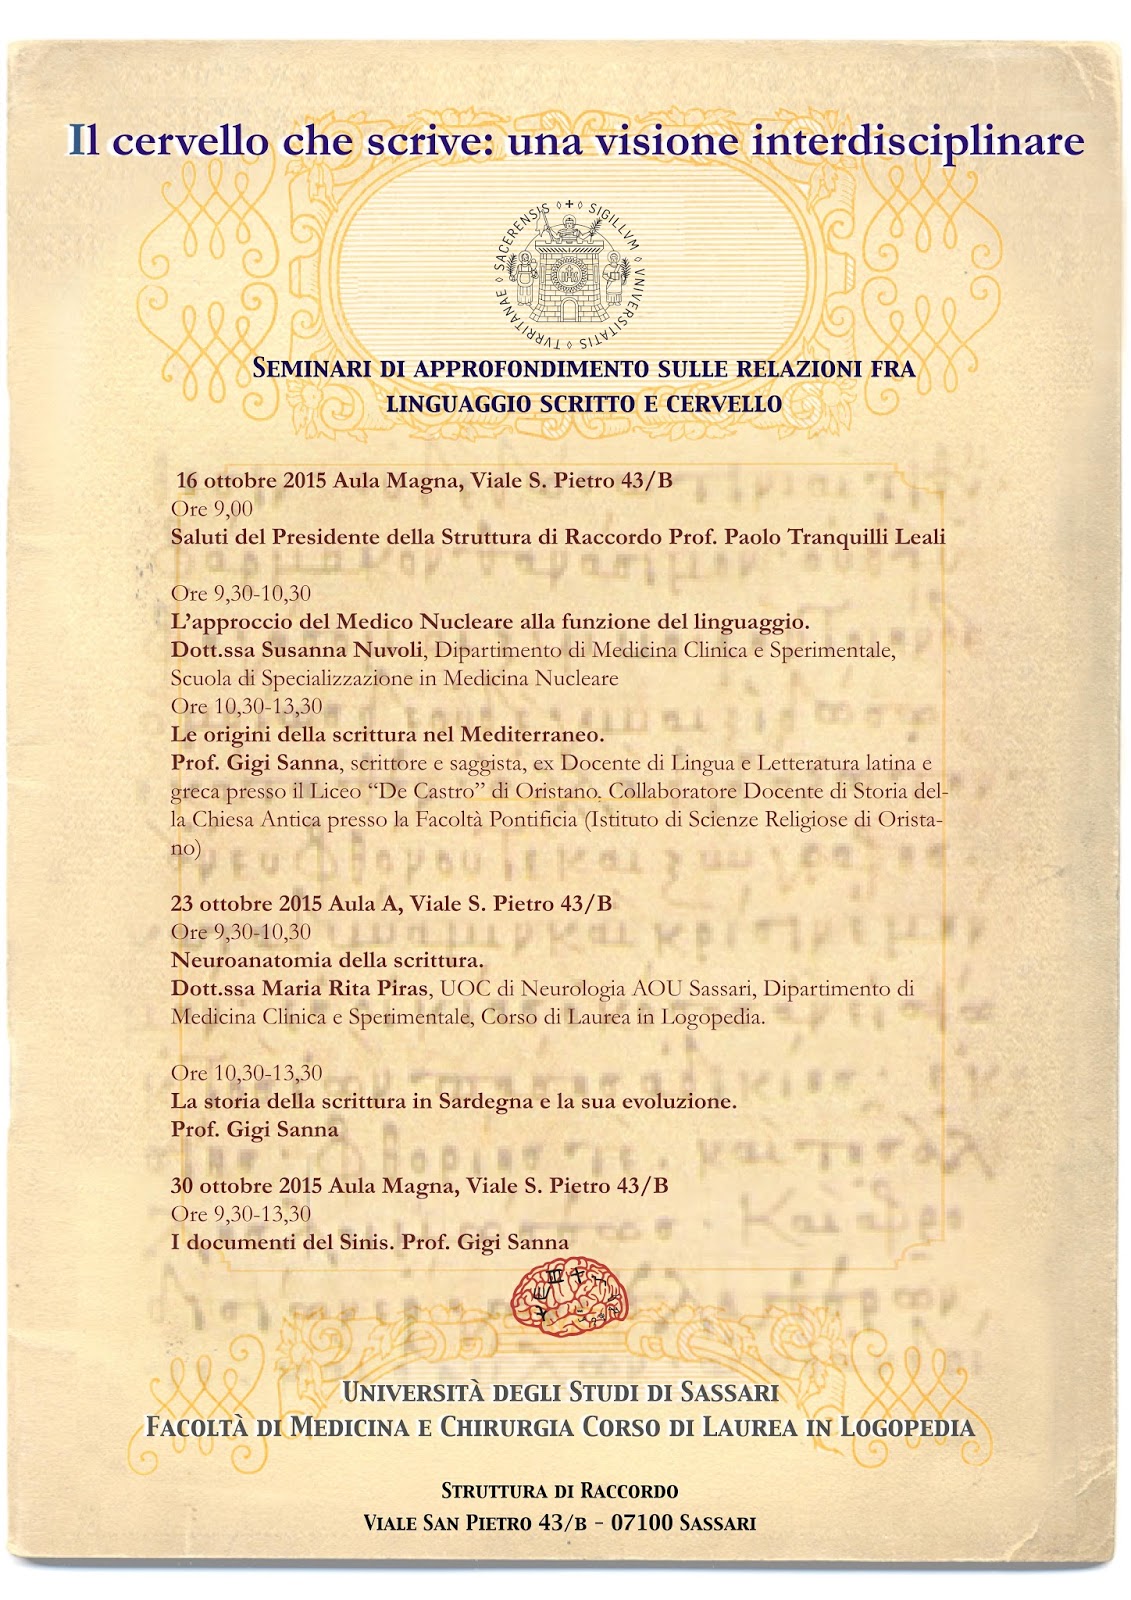 Il cervello che scrive: una visione interdisciplinare
SIGILLVM ◊ VNIVERSITATIS ◊ TVRRITANAE ◊ SACERENSIS ◊
Seminari di approfondimento sulle relazioni fra
linguaggio scritto e cervello
16 ottobre 2015 Aula Magna, Viale S. Pietro 43/B
Ore 9,00
Saluti del Presidente della Struttura di Raccordo Prof. Paolo Tranquilli Leali
Ore 9,30-10,30
L’approccio del Medico Nucleare alla funzione del linguaggio.
Dott.ssa Susanna Nuvoli, Dipartimento di Medicina Clinica e Sperimentale,
Scuola di Specializzazione in Medicina Nucleare
Ore 10,30-13,30
Le origini della scrittura nel Mediterraneo.
Prof. Gigi Sanna, scrittore e saggista, ex Docente di Lingua e Letteratura latina e
greca presso il Liceo “De Castro” di Oristano. Collaboratore Docente di Storia del-
la Chiesa Antica presso la Facoltà Pontificia (Istituto di Scienze Religiose di Orista-
no)
23 ottobre 2015 Aula A, Viale S. Pietro 43/B
Ore 9,30-10,30
Neuroanatomia della scrittura.
Dott.ssa Maria Rita Piras, UOC di Neurologia AOU Sassari, Dipartimento di
Medicina Clinica e Sperimentale, Corso di Laurea in Logopedia.
Ore 10,30-13,30
La storia della scrittura in Sardegna e la sua evoluzione.
Prof. Gigi Sanna
30 ottobre 2015 Aula Magna, Viale S. Pietro 43/B
Ore 9,30-13,30
I documenti del Sinis. Prof. Gigi Sanna
Università degli Studi di Sassari
Facoltà di Medicina e Chirurgia Corso di Laurea in Logopedia
Struttura di Raccordo
Viale San Pietro 43/b - 07100 Sassari